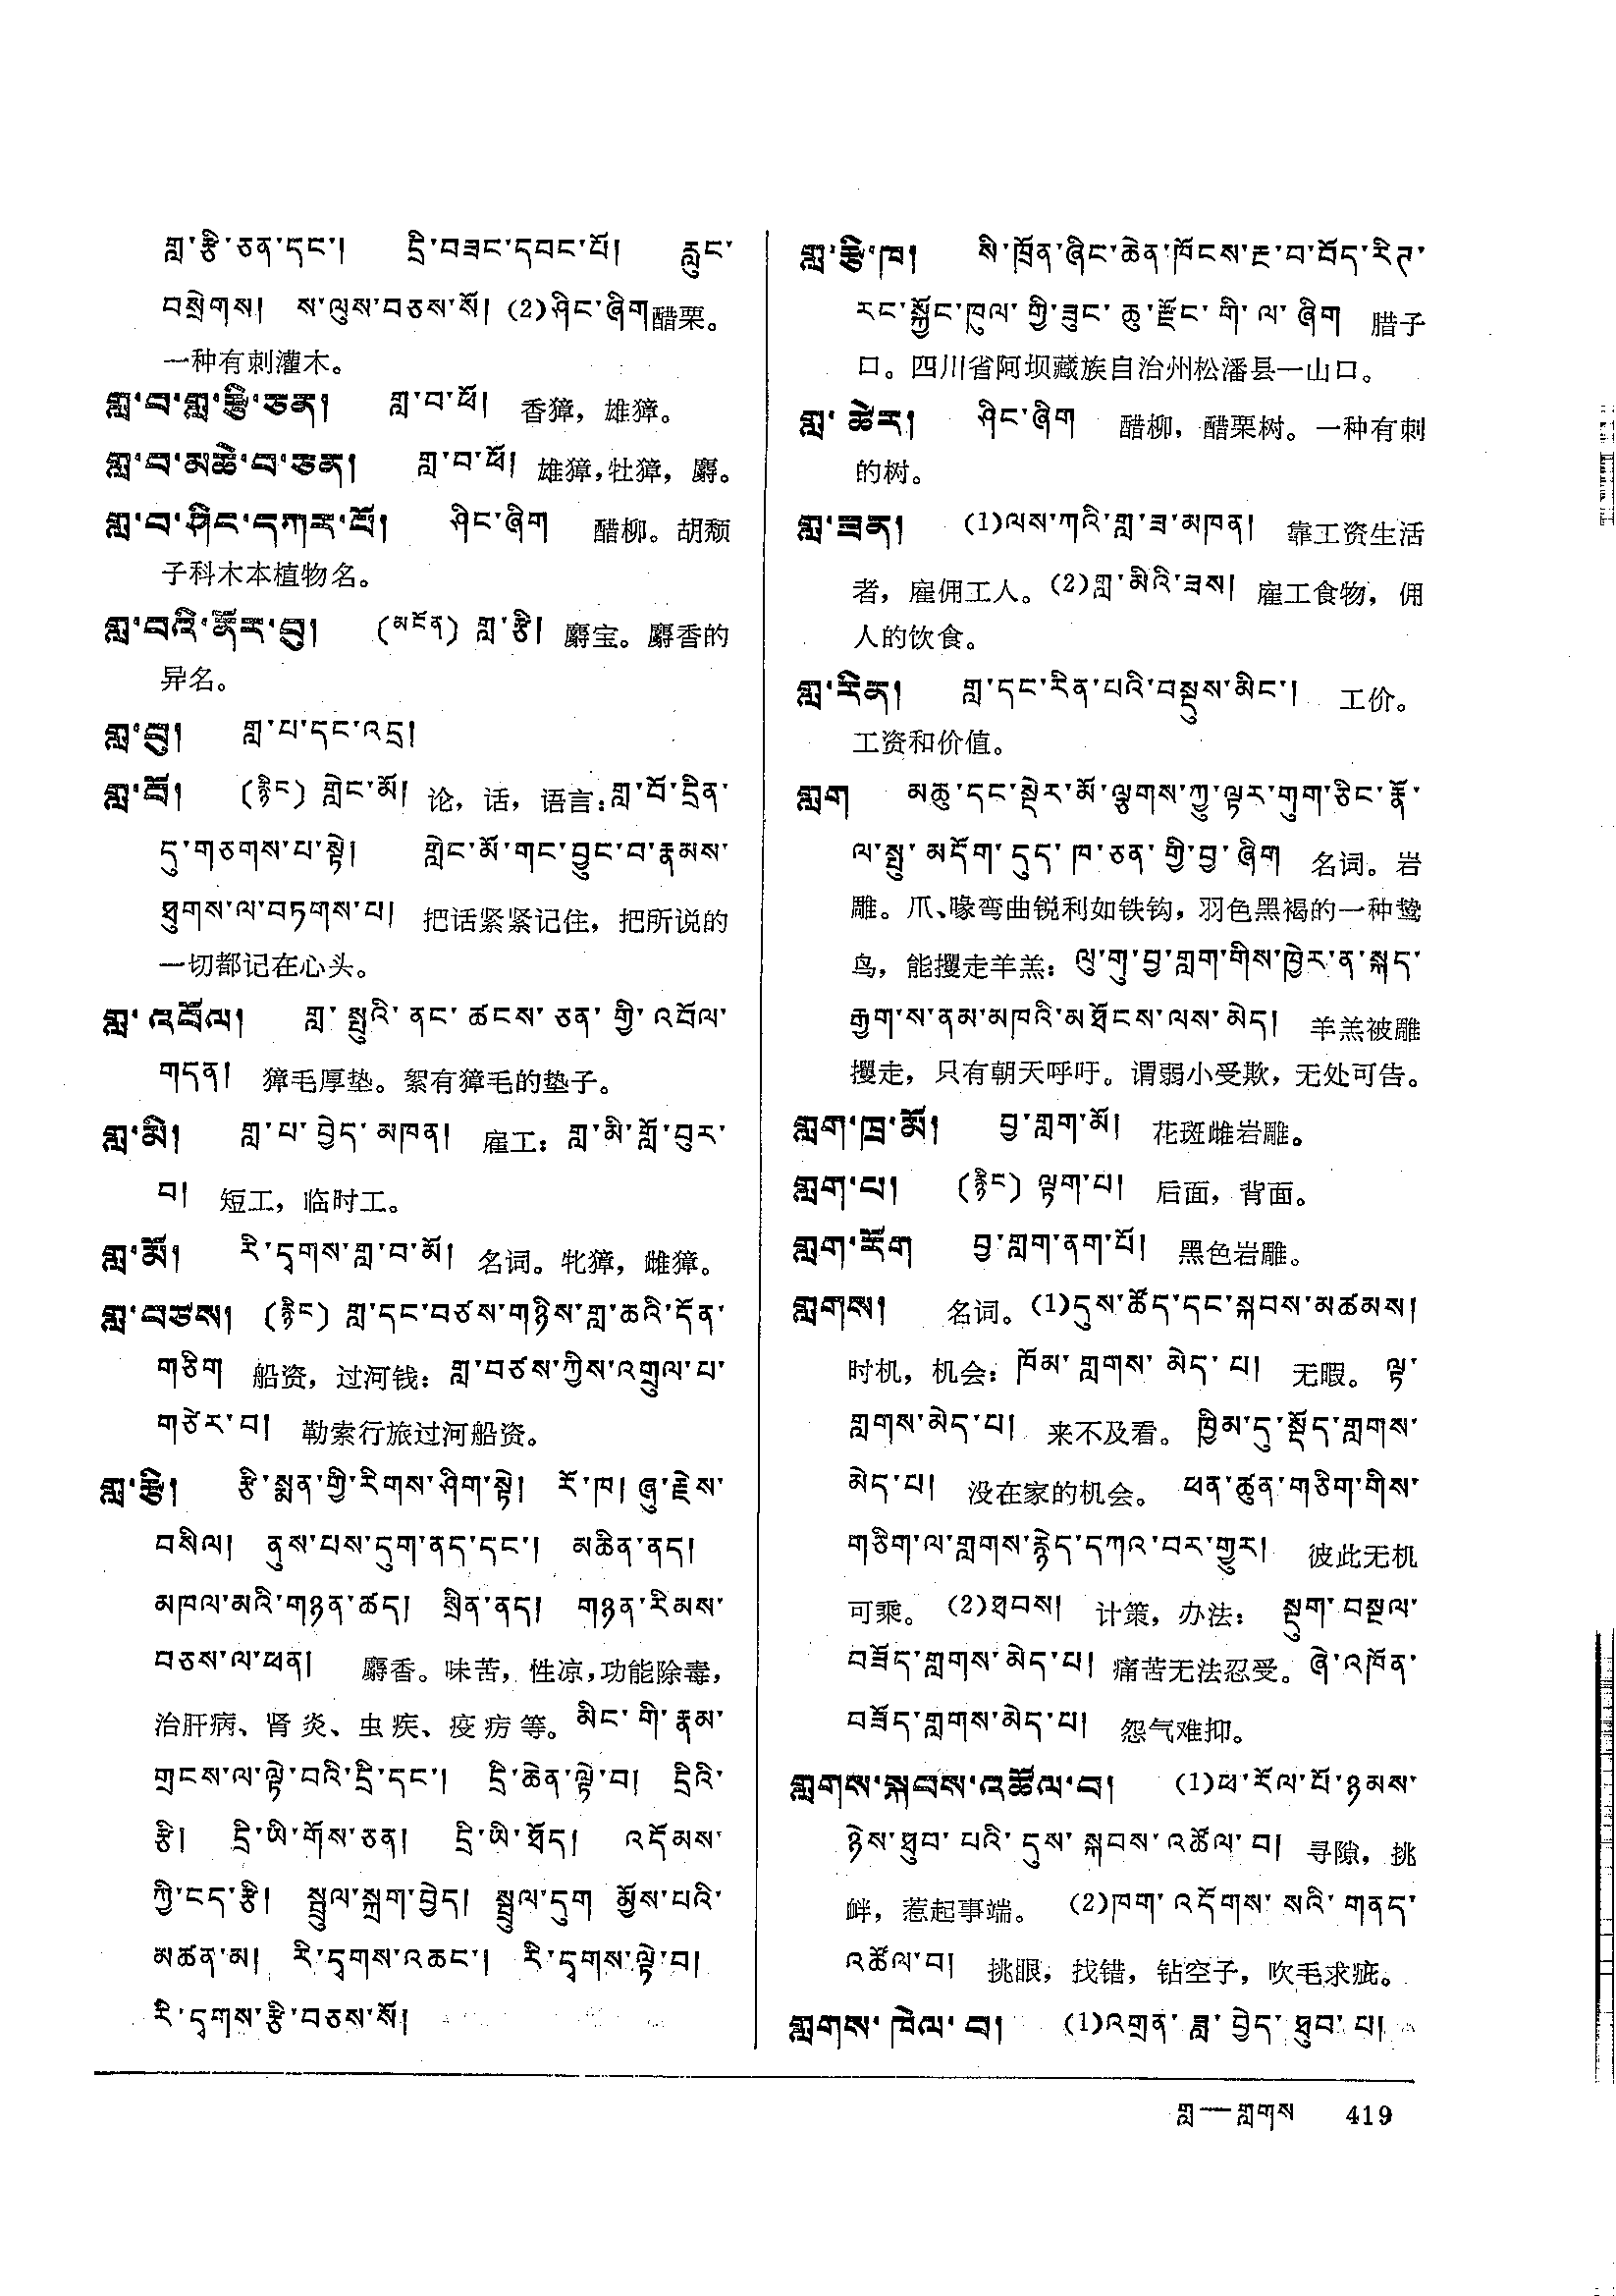 གླ་རྩི་ཅན་དང་། དྲི་བཟང་དབང་པོ། རླུང་
བསྲེགས། ས་ལུས་བཅས་སོ། (2)ཤིང་ཞིག醋栗。
一种有刺灌木。
གླ་བ་གླ་རྩི་ཅན། གླ་བ་ཕོ། 香獐，雄獐。
གླ་བ་མཆེ་བ་ཅན། གླ་བ་ཕོ། 雄獐，牡獐，麝。
གླ་བ་ཤིང་དཀར་པོ། ཤིང་ཞིག 醋柳。胡颓
子科木本植物名。
གླ་བའི་ནོར་བུ། (མངོན) གླ་རྩི། 麝宝。麝香的
异名。
གླ་བུ། གླ་པ་དང་འདྲ།
གླ་བོ། (རྙིང) གླེང་མོ། 论，话，语言：གླ་བོ་དྲིན་
དུ་གཅགས་པ་སྟེ། གླེང་མོ་གང་བྱུང་བ་རྣམས་
ཐུགས་ལ་བཏགས་པ། 把话紧紧记住，把所说的
一切都记在心头。
གླ་འབོལ། གླ་སྤུའི་ནང་ཚངས་ཅན་གྱི་འབོལ་
གདན། 獐毛厚垫。絮有獐毛的垫子。
གླ་མི། གླ་པ་བྱེད་མཁན། 雇工：གླ་མི་གློ་བུར་
བ། 短工，临时工。
གླ་མོ། རི་དྭགས་གླ་བ་མོ། 名词。牝獐，雌獐。
གླ་བཙས། (རྙིང) གླ་དང་བཙས་གཉིས་གླ་ཆའི་དོན་
གཅིག 船资，过河钱：གླ་བཙས་ཀྱིས་འགྲུལ་པ་
གཙེར་བ། 勒索行旅过河船资。
གླ་རྩི། རྩི་སྨན་གྱི་རིགས་ཤིག་སྟེ། རོ་ཁ། ཞུ་རྗེས་
བསིལ། ནུས་པས་དུག་ནད་དང་། མཆིན་ནད།
མཁལ་མའི་གཉན་ཚད། སྲིན་ནད། གཉན་རིམས་
བཅས་ལ་ཕན། 麝香。味苦，性凉，功能除毒，
治肝病、肾炎、虫疾、疫疠等。མིང་གི་རྣམ་
གྲངས་ལ་ལྟེ་བའི་དྲི་དང་། དྲི་ཆེན་ལྟེ་བ། དྲིའི་
རྩི། དྲི་ཡི་གོས་ཅན། དྲི་ཡི་ཐོད། འདོམས་
ཀྱི་ངད་རྩི། སྦྲུལ་སྐྲག་བྱེད། སྦྲུལ་དུག མྱོས་པའི་
མཚན་མ། རི་དྭགས་འཆང་། རི་དྭགས་ལྟེ་བ།
རི་དྭགས་རྩི་བཅས་སོ།
གླ་རྩི་ཁ། སི་ཁྲོན་ཞིང་ཆེན་ཁོངས་རྔ་བ་བོད་རིཊ་
རང་སྐྱོང་ཁུལ་གྱི་ཟུང་ཆུ་རྫོང་གི་ལ་ཞིག 腊子
口。四川省阿坝藏族自治州松潘县一山口。
གླ་ཚེར། ཤིང་ཞིག 醋柳，醋栗树。一种有刺
的树。
གླ་ཟན། (1)ལས་ཀའི་གླ་ཟ་མཁན། 靠工资生活
者，雇佣工人。(2)གླ་མིའི་ཟས། 雇工食物，佣
人的饮食。
གླ་རིན། གླ་དང་རིན་པའི་བསྡུས་མིང་། 工价。
工资和价值。
གླག མཆུ་དང་སྡེར་མོ་ལྕགས་ཀྱུ་ལྟར་གུག་ཅིང་རྣོ་
ལ་སྤུ་མདོག་དུད་ཁ་ཅན་གྱི་བྱ་ཞིག 名词。岩
雕。爪、喙弯曲锐利如铁钩，羽色黑褐的一种鸷
鸟，能攫走羊羔：ལུ་གུ་བྱ་གླག་གིས་ཁྱེར་ན་སྐད་
རྒྱག་ས་ནམ་མཁའི་མཐོངས་ལས་མེད། 羊羔被雕
攫走，只有朝天呼吁。谓弱小受欺，无处可告。
གླག་ཁྲ་མོ། བྱ་གླག་མོ། 花斑雌岩雕。
གླག་པ། (རྙིང) ལྟག་པ། 后面，背面。
གླག་རོག བྱ་གླག་ནག་པོ། 黑色岩雕。
གླགས། 名词。(1)དུས་ཚོད་དང་སྐབས་མཚམས།
时机，机会：ཁོམ་གླགས་མེད་པ། 无暇。ལྟ་
གླགས་མེད་པ། 来不及看。ཁྱིམ་དུ་སྡོད་གླགས་
མེད་པ། 没在家的机会。ཕན་ཚུན་གཅིག་གིས་
གཅིག་ལ་གླགས་རྙེད་དཀའ་བར་གྱུར། 彼此无机
可乘。(2)ཐབས། 计策，办法：སྡུག་བསྔལ་
བཟོད་གླགས་མེད་པ། 痛苦无法忍受。ཞེ་འཁོན་
བཟོད་གླགས་མེད་པ། 怨气难抑。
གླགས་སྐབས་འཚོལ་བ། (1)ཕ་རོལ་པོ་ཉམས་
ཉེས་ཐུབ་པའི་དུས་སྐབས་འཚོལ་བ། 寻隙，挑
衅，惹起事端。(2)ཁག་འདོགས་སའི་གནད་
འཚོལ་བ། 挑眼，找错，钻空子，吹毛求疵。
གླགས་ཁེལ་བ། (1)འགྲན་ཟླ་བྱེད་ཐུབ་པ།
གླ—གླགས 419